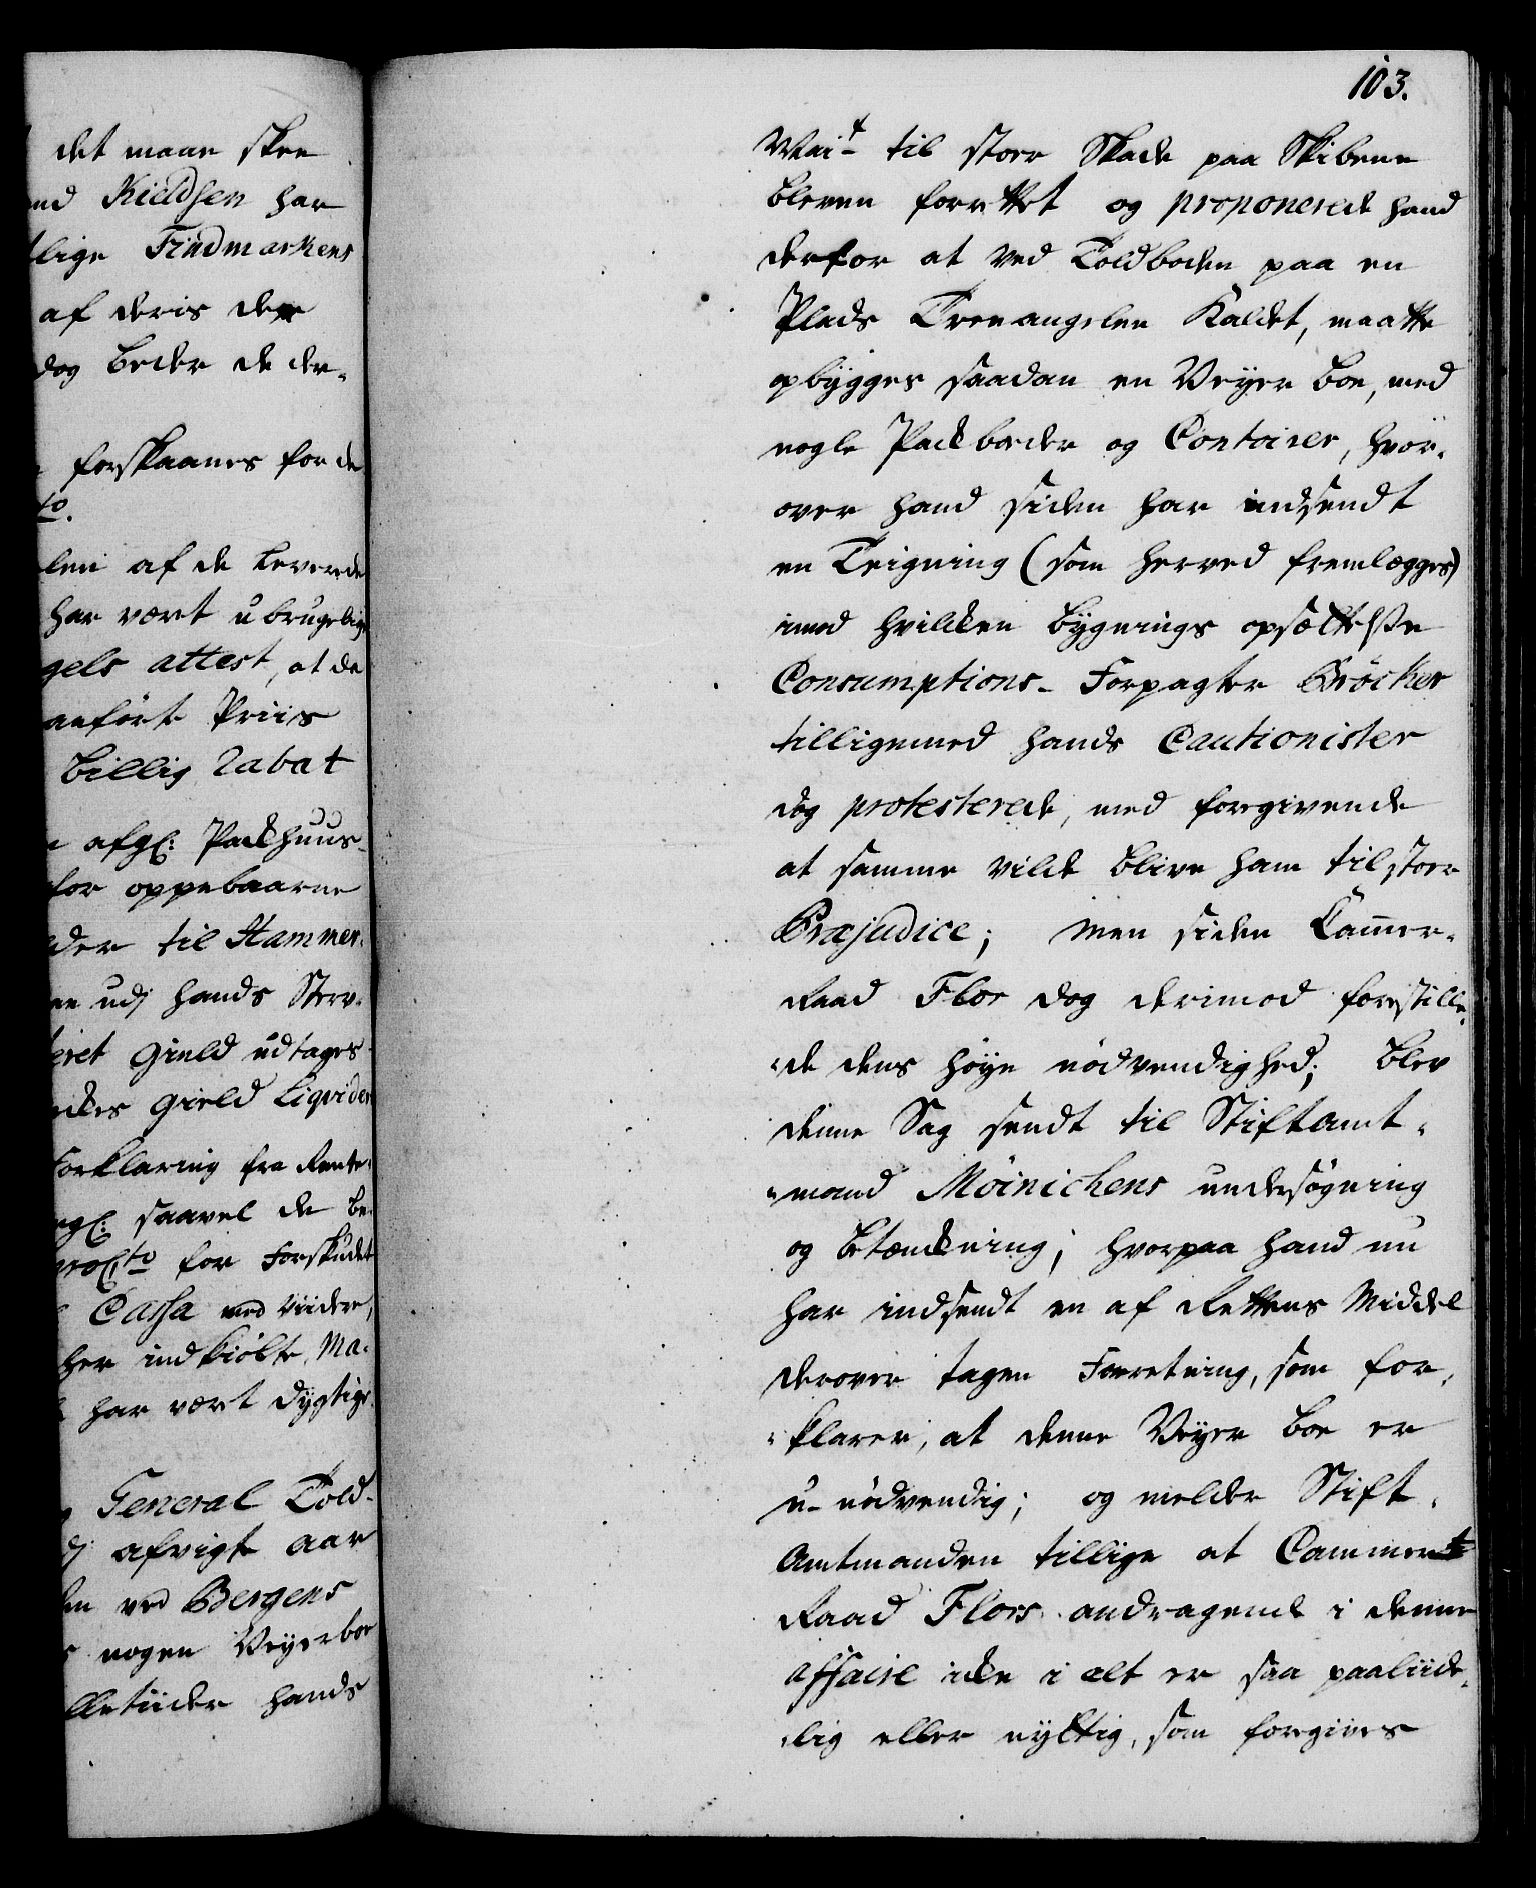 det maae skee
nd Kieldsen har
lige Findmarkens
af deris der
dog beder de der-
forskaanes for de
to.
len af de leverede
har vært ubrugelig
gels attest, at de
anförte Priis
billig Rabat
afgl: Packhuus-
for oppebaarne
der til Hammer-
udj hands Sterv-
eret Gield udtages
Gield Liqvider
Forklaring fra Rente-
saavel de be-
for Forskudet
Cassa ved Viidere,
her indkiöbte Ma-
har vært dygtige
General Told-
dj afvigte Aar
len ved Bergens
nogen Veyerboe
lletiider hands
103.
til stoer Skade paa Skibene
bleven forrettet og proponerede hand
derfor at ved Toldboden paa en
Plads Treeangelen Kaldet, maatte
opbygges saadan en Veyer boe, med
nogle Packboeder og Contoirer, hvor-
over hand siden har indsendt
en Teigning (som herved fremlægges)
imod hvilken bygnings opsættelse
Consumptions-Forpagter Bröcker
tilligemed hands Cautionister
dog protesterede, med foregivende
at samme vilde blive ham til stoer
Præjudice; Men siden Cammer-
Raad Flor dog derimod forestille-
de dens höye nödvendighed; blev
denne Sag sendt til Stiftamt-
mand Möinichens undersögning
og betænckning; hvorpaa hand nu
har indsendt en af Rettens Middel
derover tagen Forretning, som for-
klarer, at denne Veyer boe er
u-nödvendig; og melder Stift-
Amtmanden tillige at Cammer
Raad Flors andragende i denne
affaire icke i alt er saa paaliide-
lig eller nyttig, som foregives